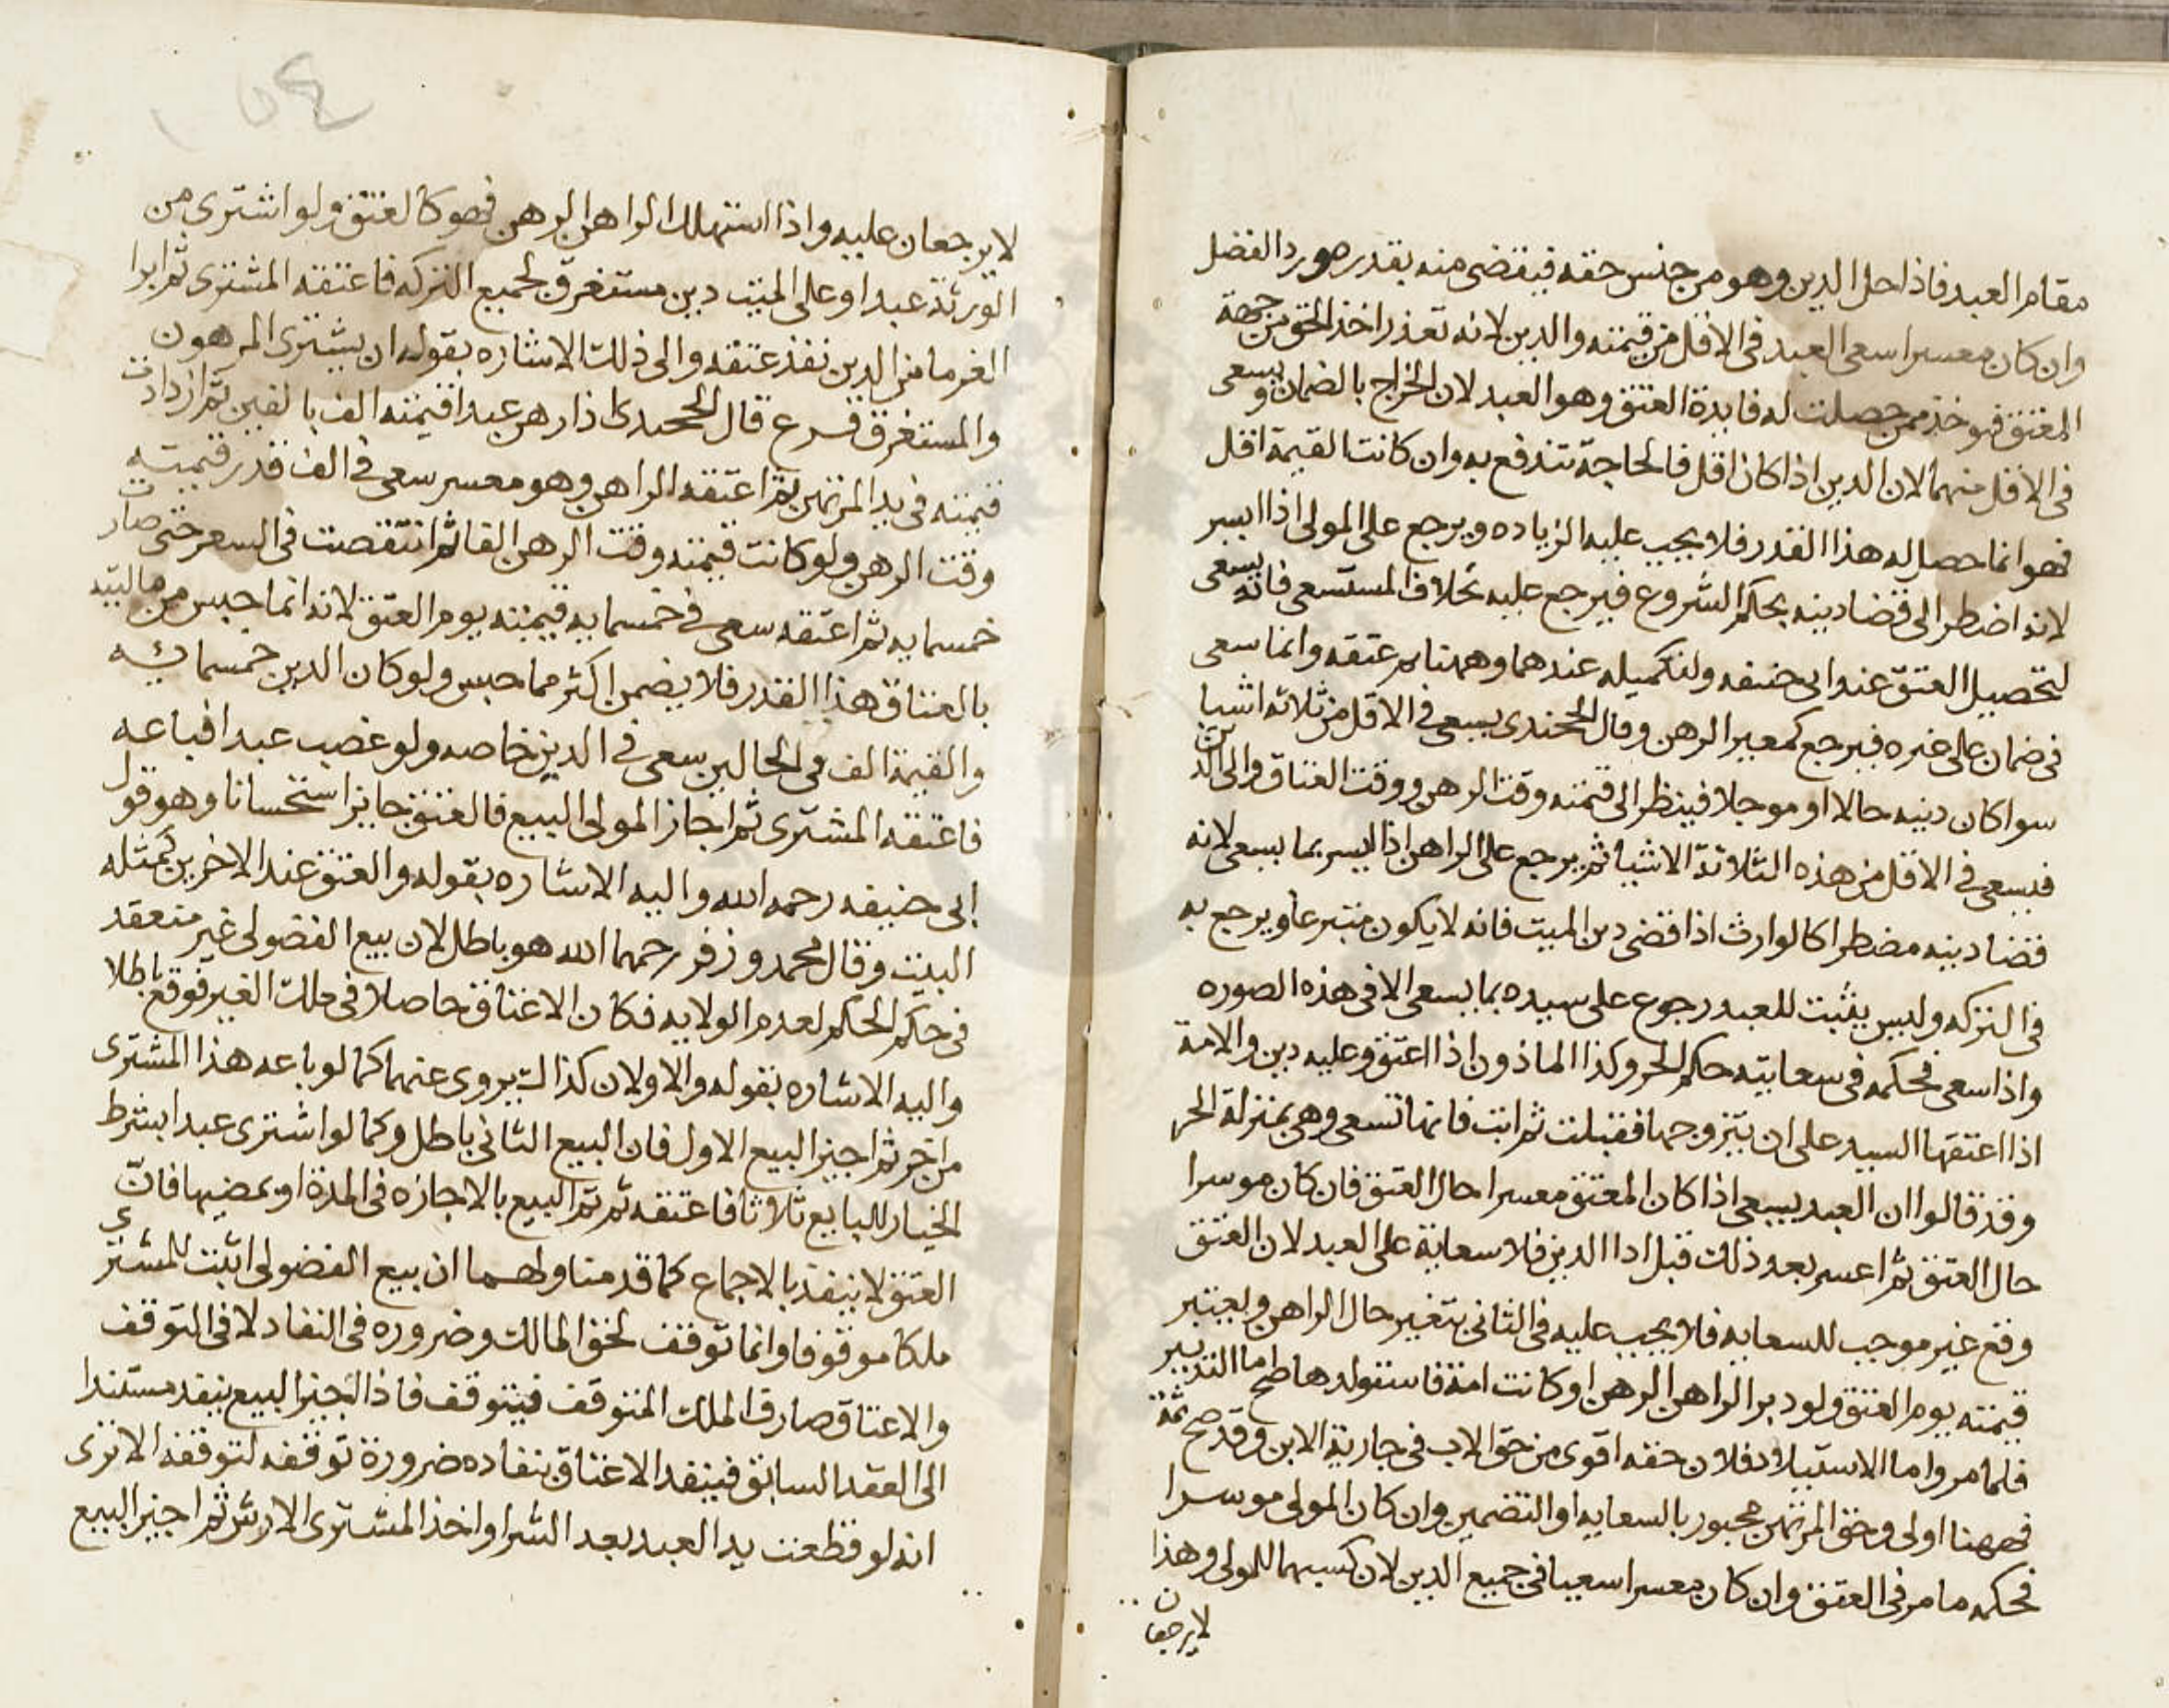 مقام العبد فاذا حل الدين وهو من جنس حقه فيقتضى منه بقدره ورد الفضل
وان كان معسرا سعى العبد فى الاقل من قيمته والدين لانه تعذر اخذ الحق من جهة
المعتق فيوخذ ممن حصلت له فايدة العتق وهو العبد لان الخراج بالضمان ويسعى
فى الاقل منهما لان الدين اذا كان اقل فالحاجة تندفع به وان كانت القيمة اقل
فهو انما حصل له هذا القدر فلا يجب عليه الزياده ويرجع على المولى اذا ايسر
لانه اضطر الى قضا دينه بحكم الشروع فيرجع عليه بخلاف المستسعى فانه يسعى
لتحصيل العتق عند ابى حنيفه ولتكميله عندهما وههنا تم عتقه وانما سعى
فى ضمان على غيره فيرجع كمعير الرهن وقال الخجندى يسعى فى الاقل من ثلاثه اشيا
سوا كان دينه حالا او موجلا فينظر الى قيمته وقت الرهن ووقت العتاق والى الدين
فيسعى فى الاقل من هذه الثلاثة الاشيا ثم يرجع على الراهن اذا ايسر بما يسعى لانه
قضا دينه مضطرا كالوارث اذا قضى دين الميت فانه لا يكون متبرعا ويرجع به
فى التركه وليس يثبت للعبد رجوع على سيده بما يسعى الا فى هذه الصوره
واذا سعى فحكمه فى سعايته حكم الحر وكذا الماذون اذا اعتق وعليه دين والامة
اذا اعتقها السيد على ان يتزوجها فقبلت ثم ابت فانها تسعى وهى بمنزلة الحر
وقد قالوا ان العبد يسعى اذا كان المعتق معسرا حال العتق فان كان موسرا
حال العتق ثم اعسر بعد ذلك قبل ادا الدين فلا سعاية على العبد لان العتق
وقع غير موجب للسعايه فلا يجب عليه فى الثانى بتغير حال الراهن ويعتبر
قيمته يوم العتق ولو دبر الراهن الرهن او كانت امة فاستولدها صح اما التدبير
فلما مر واما الاستيلاد فلان حقه اقوى من حق الاب فى جارية الابن وقد صح ثمة
فههنا اولى وحق المرتهن مجبور بالسعايه او التضمين وان كان المولى موسرا
فحكمه ما مر فى العتق وان كان معسرا سعيا فى جميع الدين لان كسبهما للمولى وهذا
لا يرجعان
لا يرجعان عليه واذا استهلك الراهن الرهن فهو كالعتق ولو اشترى من
الورثة عبدا وعلى الميت دين مستغرق لجميع التركه فاعتقه المشترى ثم ابرا
الغرما من الدين نفذ عتقه والى ذلك الاشاره بقوله ان يشترى المرهون
والمستغرق فرع قال الخجندى اذا رهن عبدا قيمته الف بالفين ثم ازدادت
قيمته فى يد المرتهن ثم اعتقه الراهن وهو معسر سعى فى الف قدر قيمته
وقت الرهن ولو كانت قيمته وقت الرهن الفا ثم انتقصت فى السعر حتى صارت
خمسمايه ثم اعتقه سعى فى خمسمايه قيمته يوم العتق لانه انما حبس من ماليته
بالعتاق هذا القدر فلا يضمن اكثر مما حبس ولو كان الدين خمسمائه
والقيمة الف فى الحالين سعى فى الدين خاصه ولو غصب عبدا فباعه
فاعتقه المشترى ثم اجاز المولى البيع فالعتق جايز استحسانا وهو قول
ابى حنيفه رحمه الله واليه الاشاره بقوله والعتق عند الاخرين كمثله
البت وقال محمد وزفر رحمهما الله هو باطل لان بيع الفضولى غير منعقد
فى حكم الحكم لعدم الولايه فكان الاعتاق حاصلا فى ملك الغير فوقع باطلا
واليه الاشاره بقوله والاولان كذاك يروى عنهما كما لو باعه هذا المشترى
من اخر ثم اجيز البيع الاول فان البيع الثانى باطل وكما لو اشترى عبدا بشرط
الخيار للبايع ثلاثا فاعتقه ثم تم البيع بالاجازه فى المدة او بمضيها فان
العتق لا ينفذ بالاجماع كما قدمنا ولهما ان بيع الفضولى اثبت للمشترى
ملكا موقوفا وانما توقف لحق المالك وضروره فى النفاد لا فى التوقف
والاعتاق صارف الملك المتوقف فيتوقف فاذا اجيز البيع ينفد مستندا
الى العقد السابق فينفد الاعتاق بنفاده ضرورة توقفه لتوقفه الا ترى
انه لو قطعت يد العبد بعد الشرا واخذ المشترى الارش ثم اجيز البيع